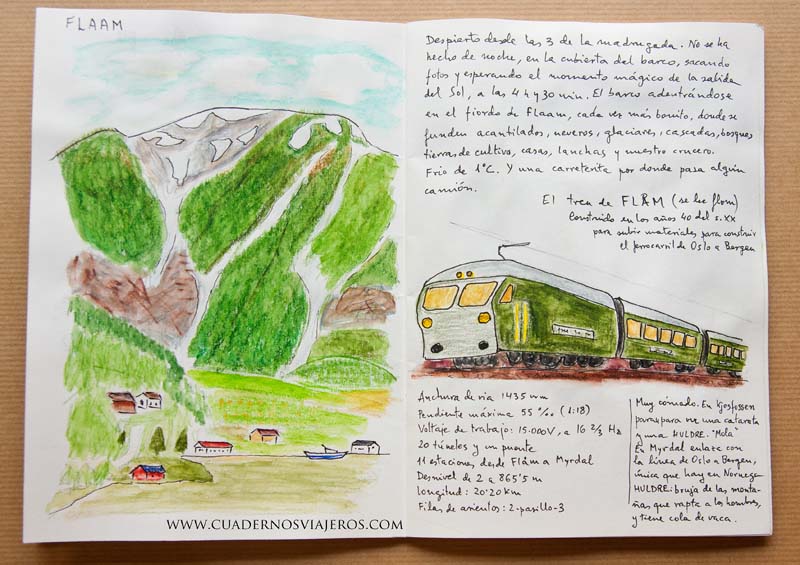 FLAAM
Despierto desde las 3 de la madrugada. No se ha
hecho de noche, en la cubierta del barco, sacando
fotos y esperando el momento mágico de la salida
del Sol, a las 4 h y 30 min. El barco adentrándose
en el fiordo de Flaam, cada vez más bonito, donde se
funden acantilados, neveros, glaciares, cascadas, bosques
tierras de cultivo, casas, lanchas y nuestro crucero.
Frío de 1°C. Y una carreterita por donde pasa algún
camión.
El tren de FLÅM (se lee flom)
Construido en los años 40 del s. XX
para subir materiales para construir
el ferrocarril de Oslo a Bergen
Anchura de vía 1435 mm
Pendiente máxima 55 ‰ (1:18)
Voltaje de trabajo: 15.000V, a 16 2/3 Hz
20 túneles y un puente
11 estaciones desde Flåm a Myrdal
Desnivel de 2 a 865'5 m
Longitud: 20'20 km
Filas de asientos: 2-pasillo-3
Muy cómodo. En Kjosfossen
paras para ver una catarata
y una HULDRE. "Mola"
En Myrdal enlace con
la línea de Oslo a Bergen,
única que hay en Noruega
HULDRE: bruja de las monta-
ñas que rapta a los hombres,
y tiene cola de vaca.
WWW.CUADERNOSVIAJEROS.COM